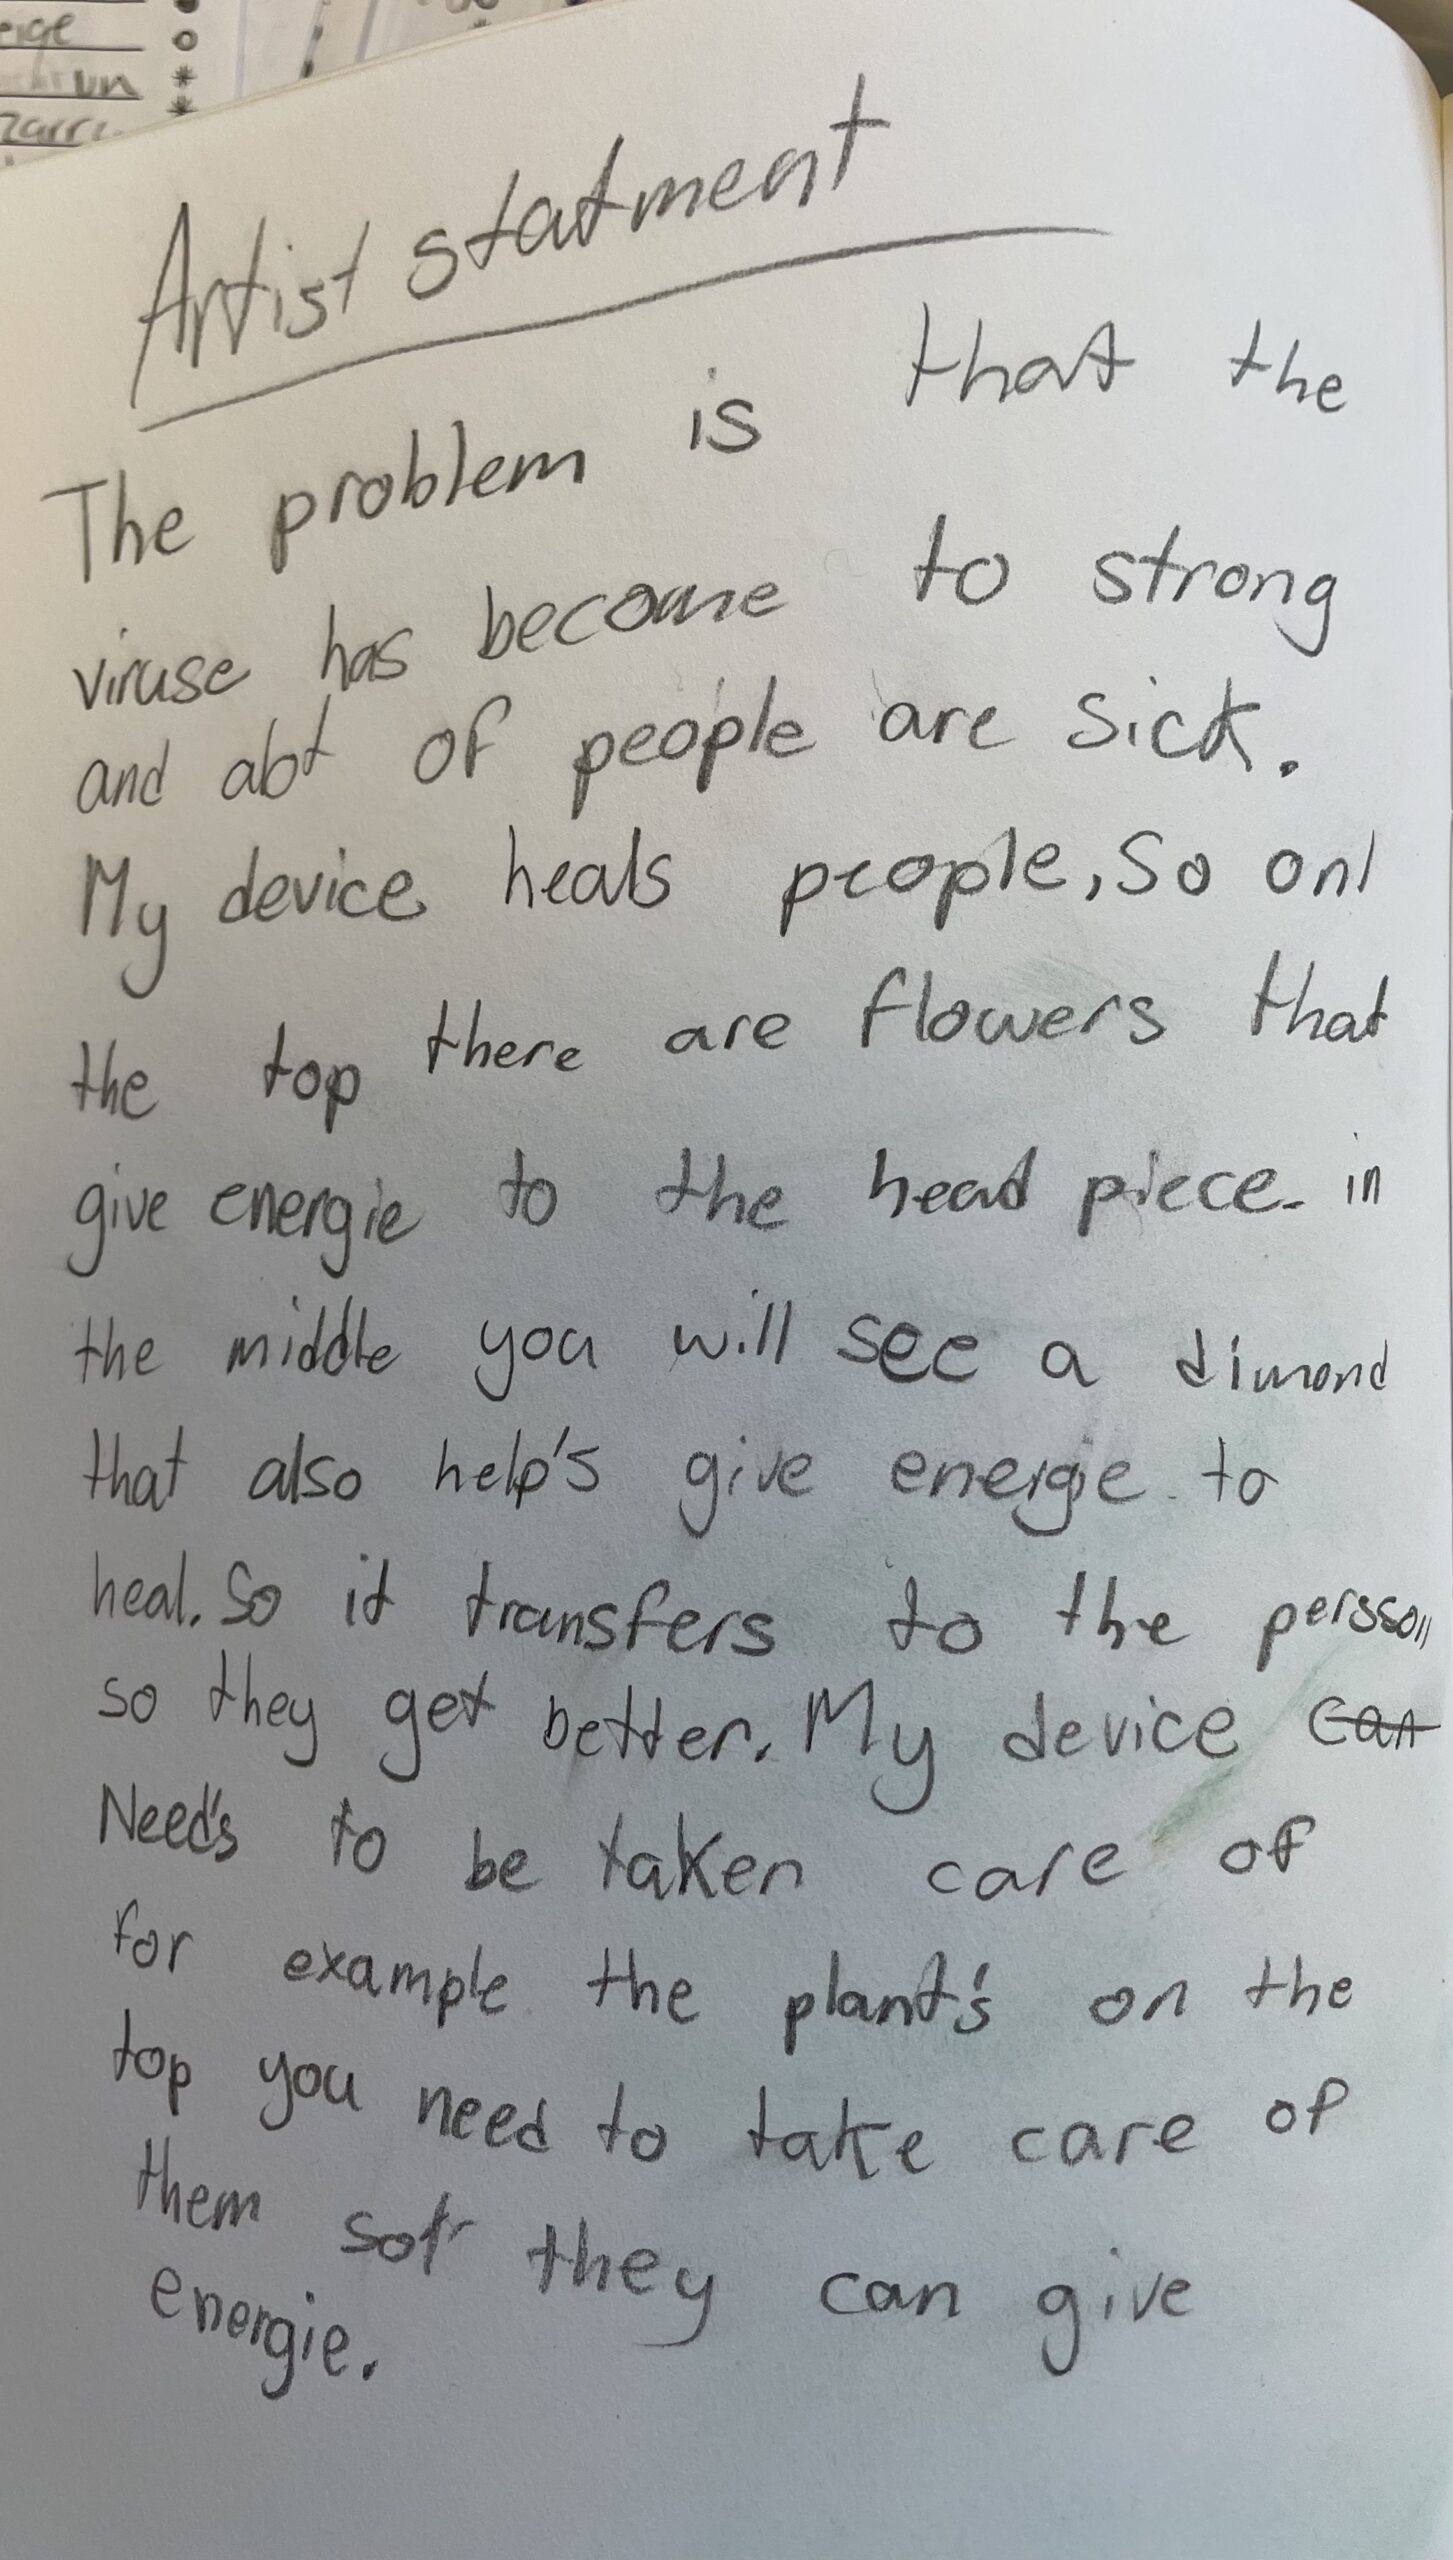 eige
un
zarri
Artist statment
The problem is that the
viruse has become to strong
and alot of people are sick.
My device heals people, So on
the top there are flowers that
give energie to the head piece. in
the middle you will see a dimond
that also help's give energie to
heal. So it transfers to the persson
so they get better. My device can
Need's to be taken care of
for example the plant's on the
top you need to take care of
them sot they can give
energie.